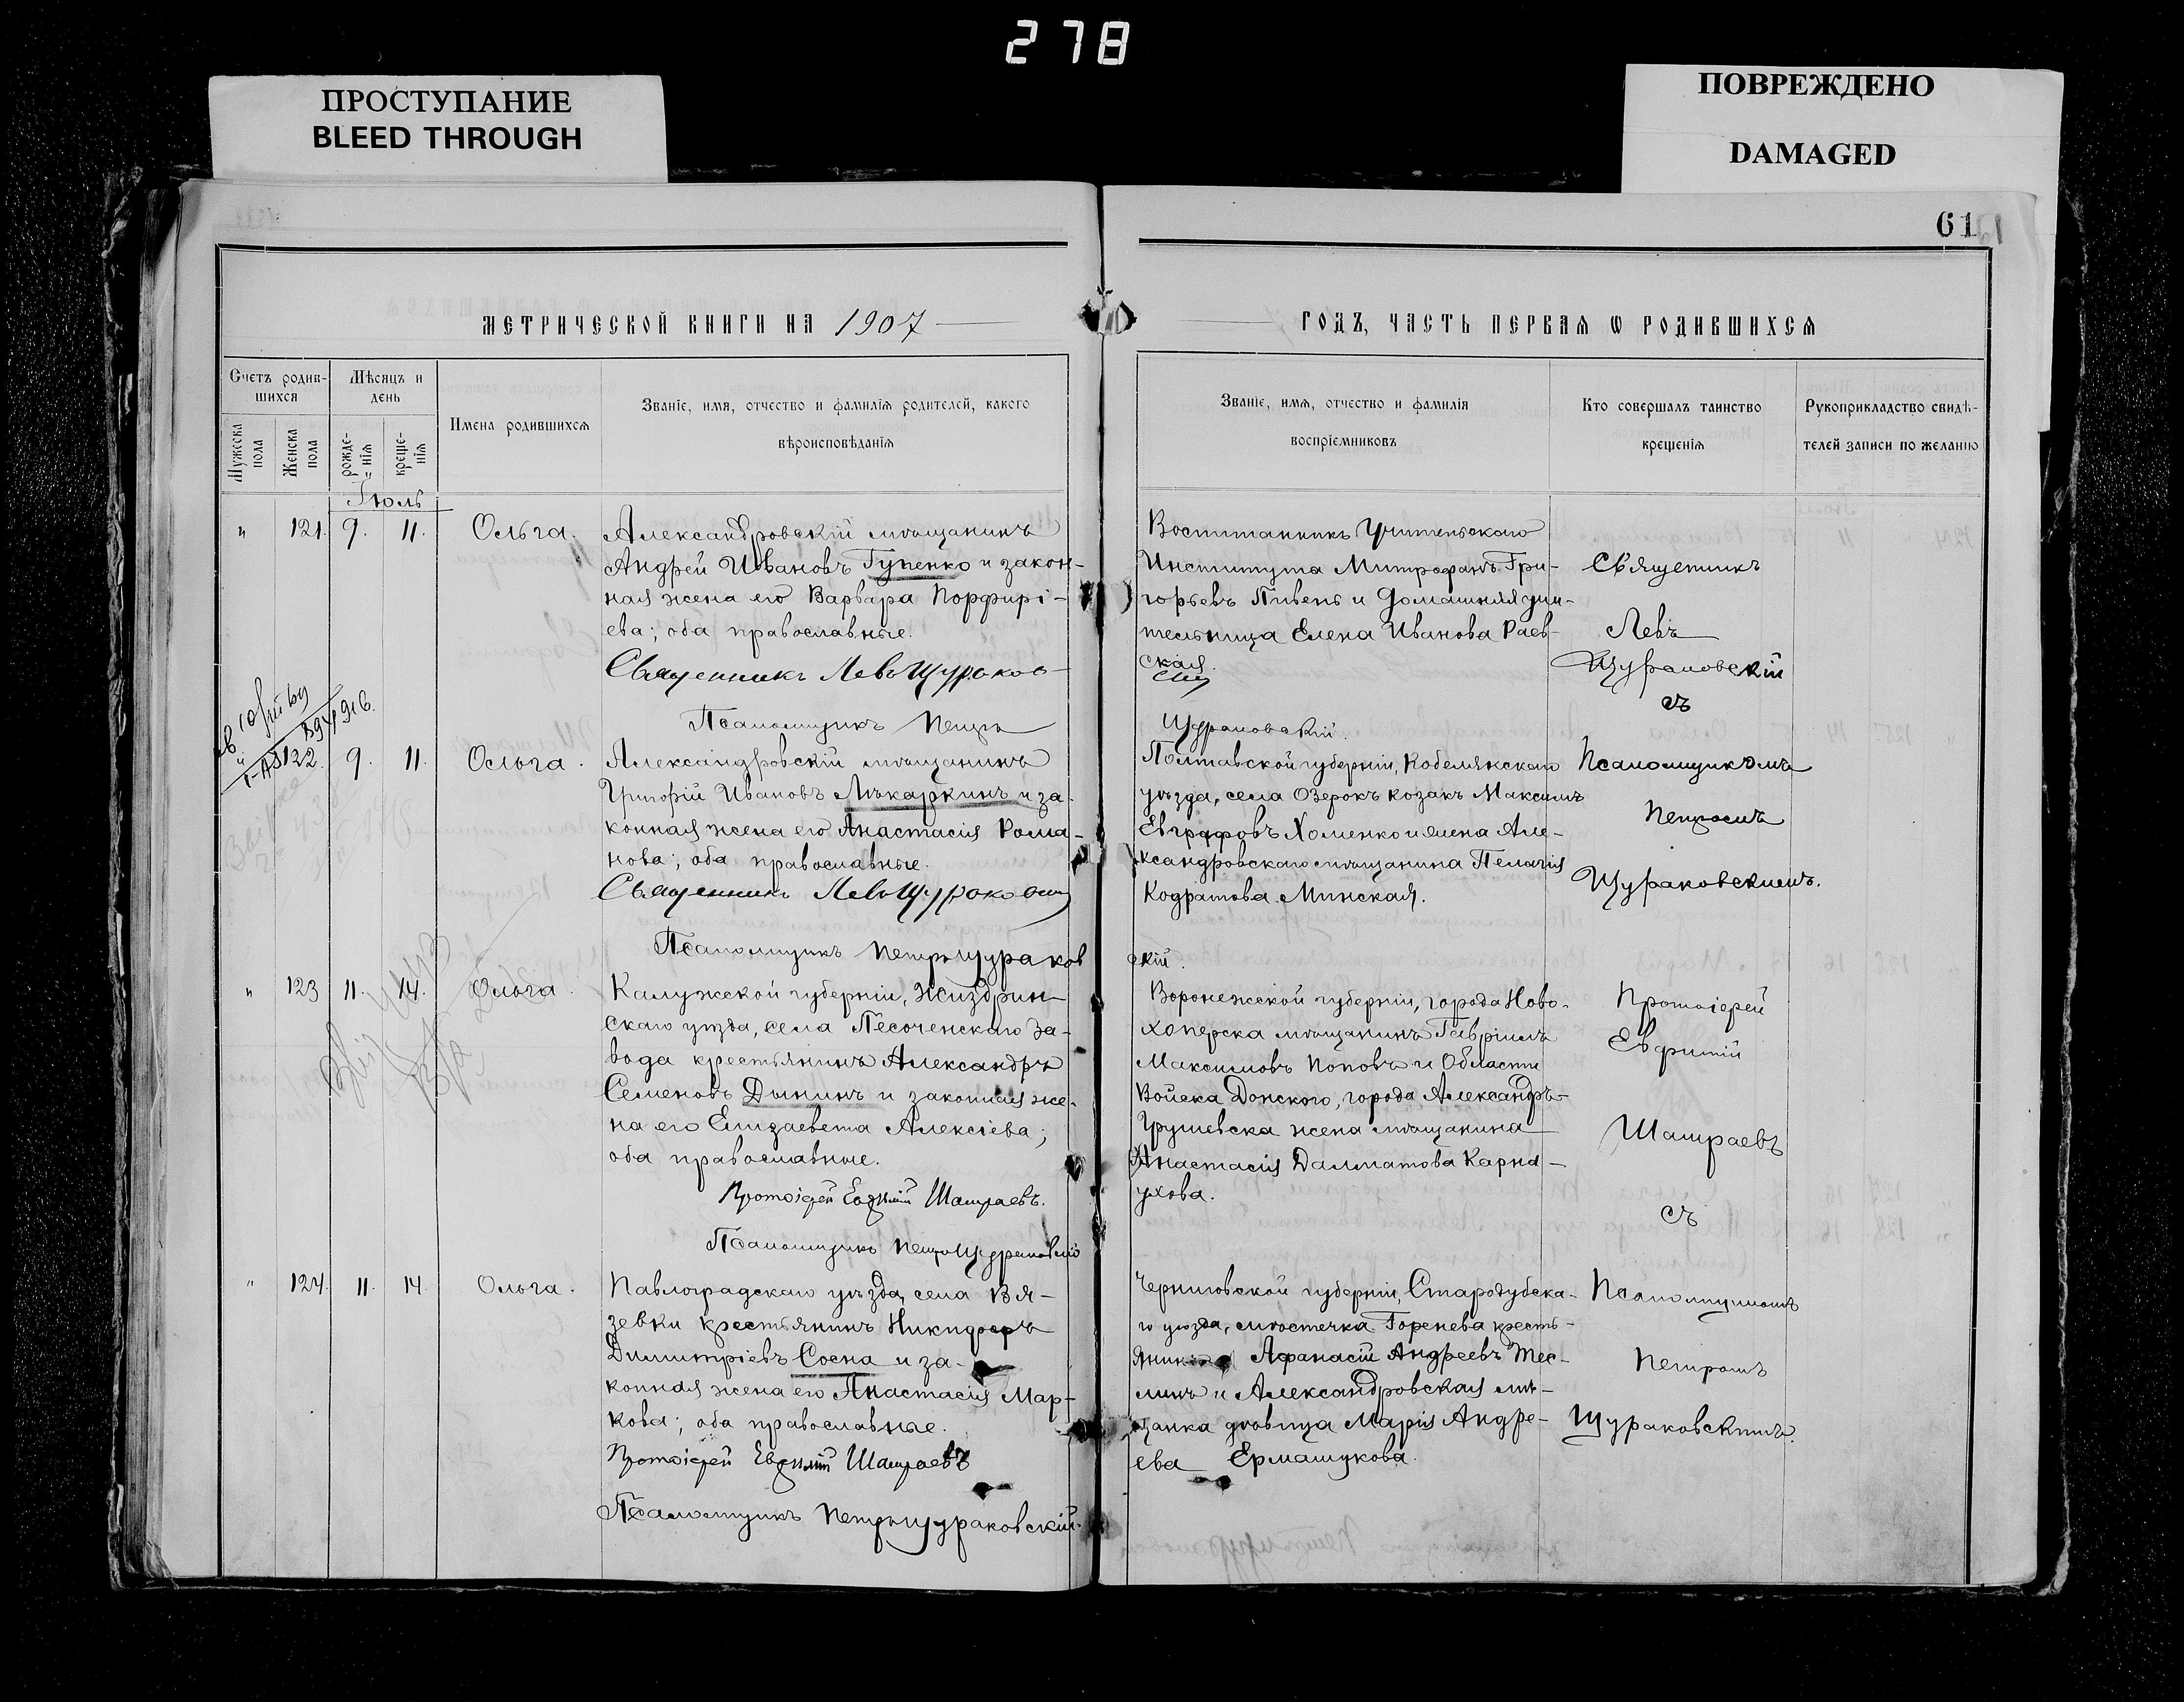 278
ПРОСТУПАНИЕ
BLEED THROUGH
ПОВРЕЖДЕНО
DAMAGED
61
МЕТРИЧЕСКОЙ КНИГИ НА 1907
ГОДЪ, ЧАСТЬ ПЕРВАЯ Ѡ РОДИВШИХСЯ
Счетъ родив-
шихся
Мужеска пола
Женска пола
Мѣсяцъ и
день
рожде-
нія
креще-
нія
Имена родившихся
Званіе, имя, отчество и фамилія родителей, какого
вѣроисповѣданія
Званіе, имя, отчество и фамилія
воспріемниковъ
Кто совершалъ таинство
крещенія
Рукоприкладство свидѣ-
телей записи по желанію
Іюль
" 121. 9. 11. Ольга.
Александровскій мѣщанинъ
Андрей Ивановъ Гупенко и закон-
ная жена его Варвара Порфирі-
ева; оба православные.
Священникъ Левъ Щураков-
Псаломщикъ Петръ
Воспитанникъ Учительскаго
Института Митрофанъ Гри-
горьевъ Пивень и Домашняя учи-
тельница Елена Иванова Раев-
ская.
Щураковскій.
Священникъ
Левъ
Щураковскій
съ
Псаломщикомъ
Петромъ
Щураковскимъ.
122. 9. 11. Ольга.
Александровскій мѣщанинъ
Григорій Ивановъ Мѣкаркинъ и за-
конная жена его Анастасія Рома-
нова; оба православные.
Священникъ Левъ Щураковскій
Псаломщикъ Петръ Щураков
Полтавской губерніи, Кобелякскаго
уѣзда, села Озерокъ козакъ Максимъ
Евграфовъ Хоменко и жена Але-
ксандровскаго мѣщанина Пелагія
Кодратова Минская.
скій.
" 123 11. 14. Ольга.
Калужской губерніи, Жиздрин-
скаго уѣзда, села Песоченскаго За-
вода крестьянинъ Александръ
Семеновъ Дынинъ и законная же-
на его Елизавета Алексіева;
оба православные.
Протоіерей Евфимій Шамраевъ.
Псаломщикъ Петръ Щураковскій
Воронежской губерніи, города Ново-
хоперска мѣщанинъ Гавріилъ
Максимовъ Поповъ и Области
Войска Донского, города Александръ-
Грушевска жена мѣщанина
Анастасія Далматова Карна-
ухова.
Протоіерей
Евфимій
Шамраевъ
съ
Псаломщикомъ
Петромъ
Щураковскимъ.
" 124. 11. 14. Ольга.
Павлоградскаго уѣзда, села Вя-
зевки крестьянинъ Никифоръ
Димитріевъ Сосна и за-
конная жена его Анастасія Мар-
кова; оба православные.
Протоіерей Евфимій Шамраевъ
Псаломщикъ Петръ Щураковскій.
Черниговской губерніи, Стародубска-
го уѣзда, мѣстечка Горенева кресть-
янинъ Афанасій Андреевъ Тес-
линъ и Александровская мѣ-
щанка дѣвица Марія Андре-
ева Ермашукова.